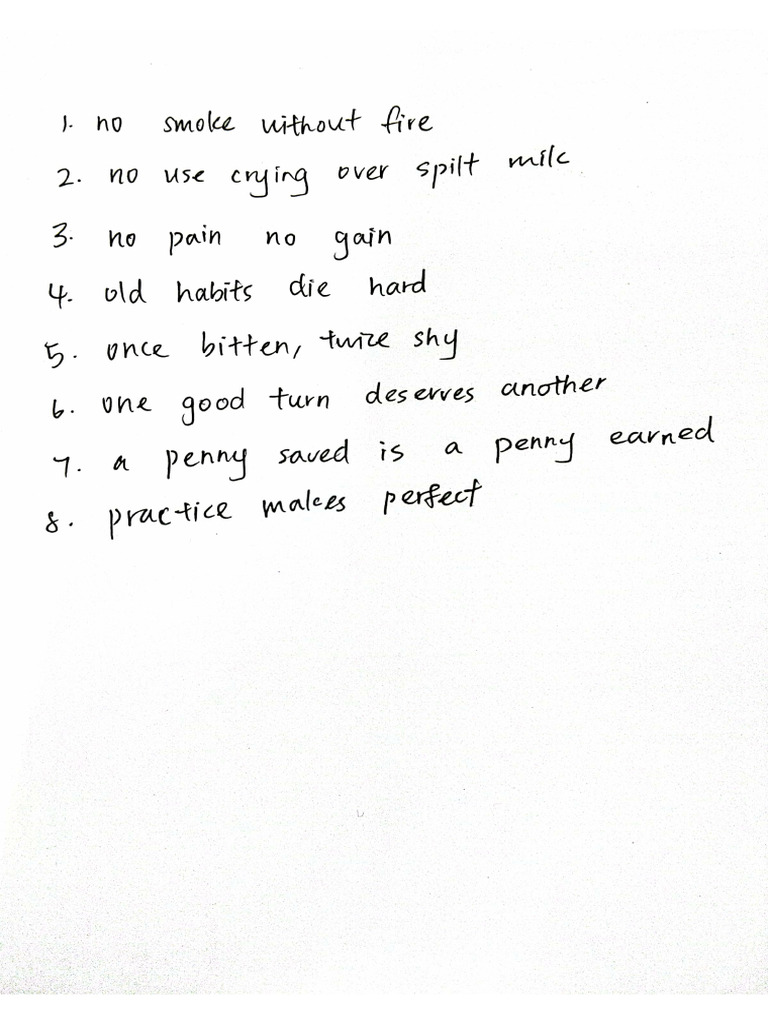 1. no smoke without fire
2. no use crying over spilt milk
3. no pain no gain
4. old habits die hard
5. once bitten, twice shy
6. one good turn deserves another
7. a penny saved is a penny earned
8. practice makes perfect